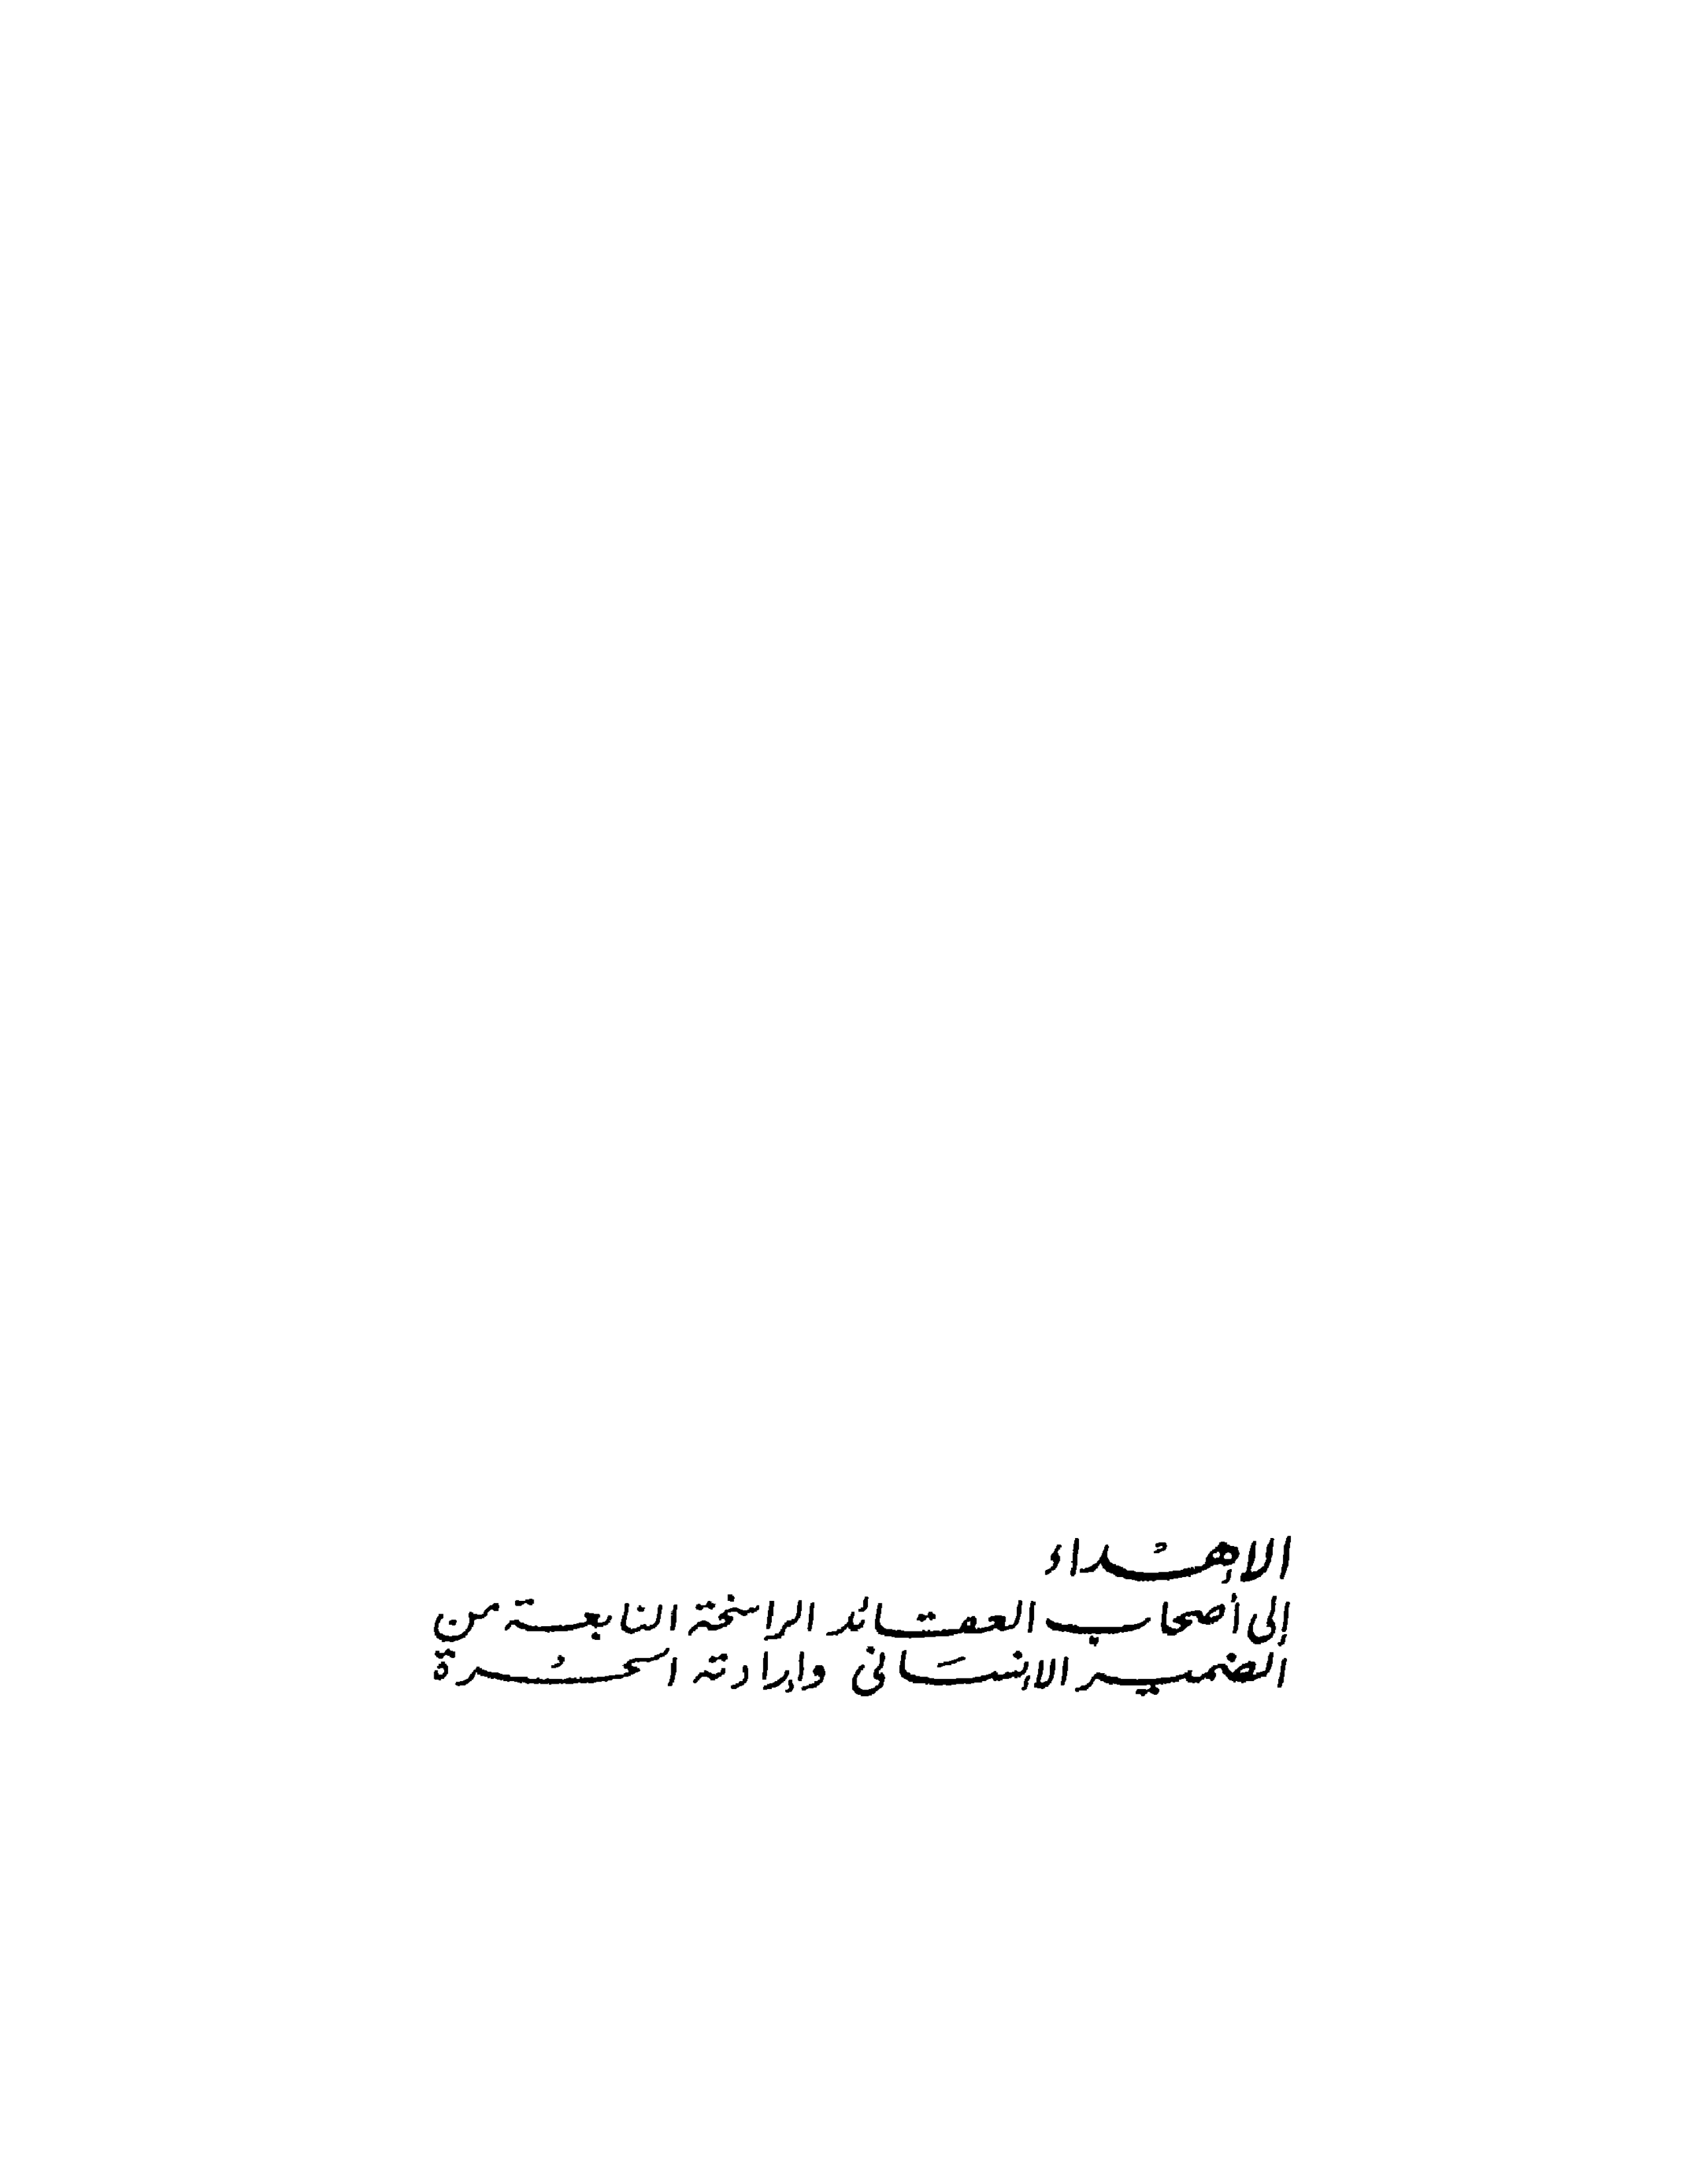 الإهداء
إلى أصحاب العقائد الراسخة النابعة من
الضمير الإنساني وإرادته الحرة